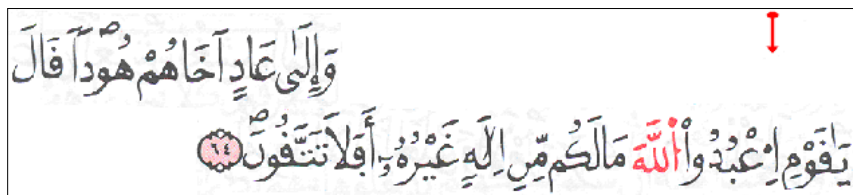 وَإِلَىٰ عَادٍ اَخَاهُمْ هُوداٗۖ قَالَ
يَٰقَوْمِ اِ۟عْبُدُواْ اُ۬للَّهَ مَا لَكُم مِّنِ اِلَٰهٍ غَيْرُهُۥٓ أَفَلَا تَتَّقُونَۖ ٦٤